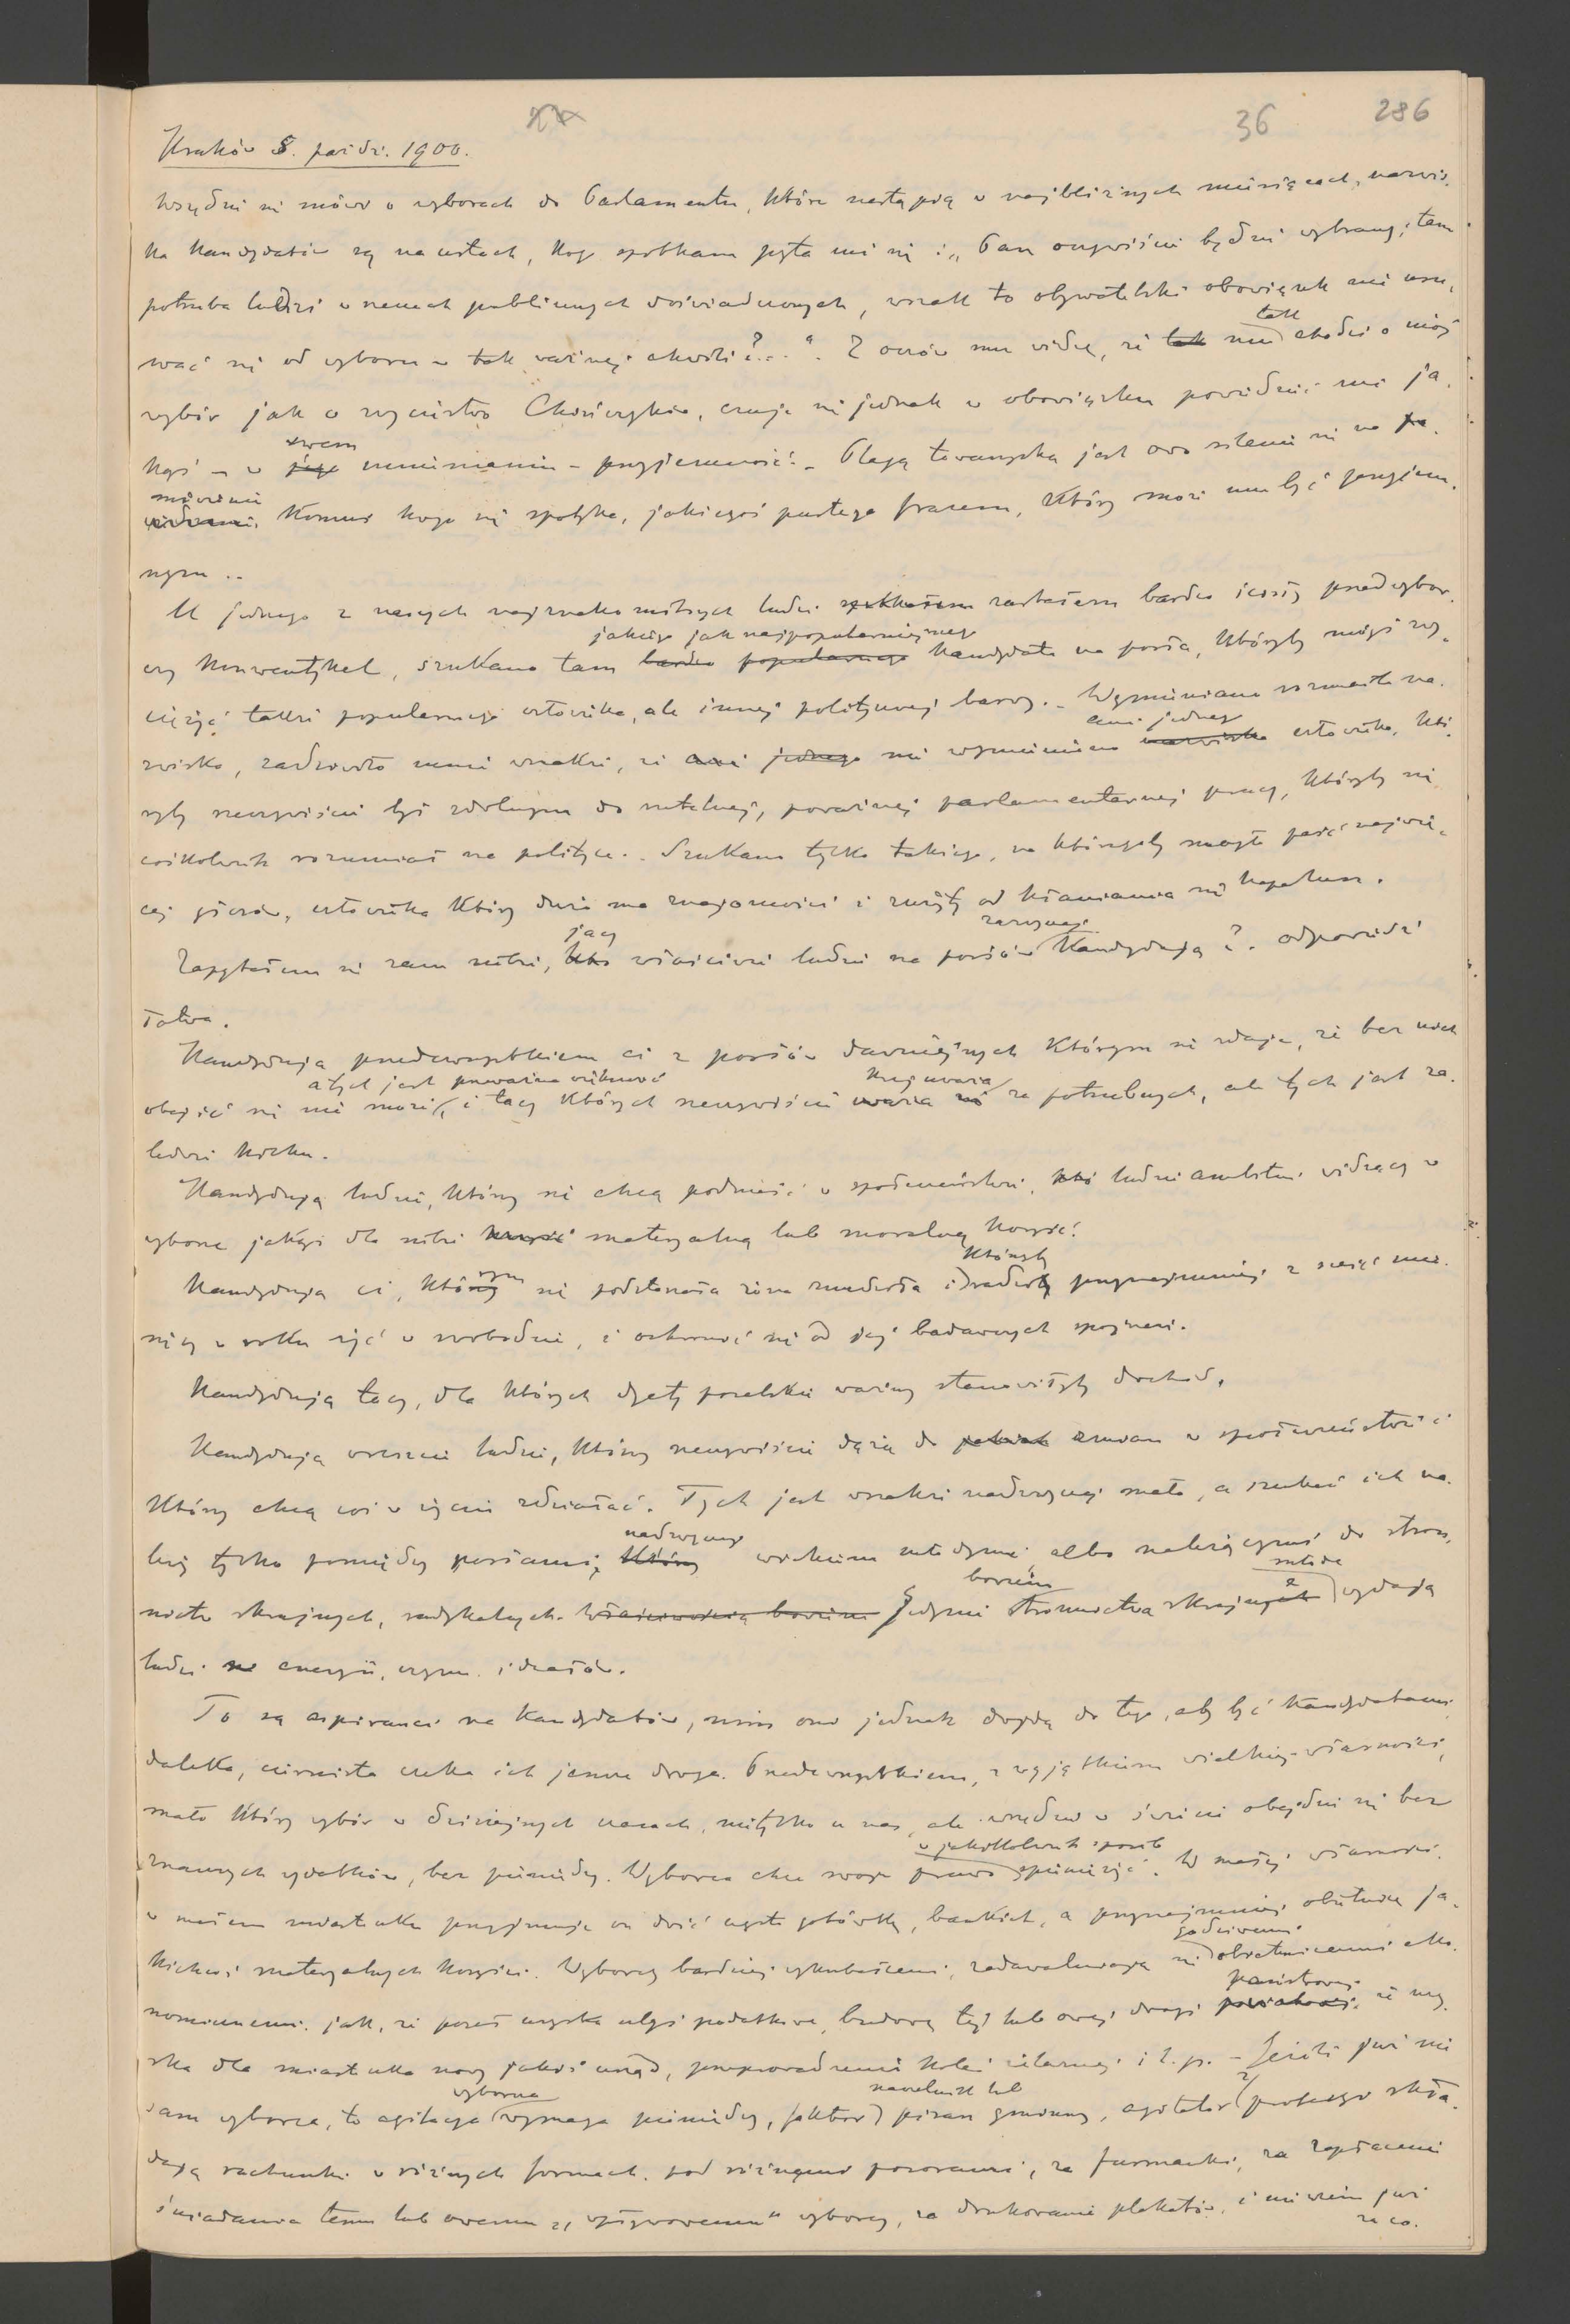 36 286
Kraków 8. paźdz. 1900.
Wszędzie się mówi o wyborach do Parlamentu, które nastąpią w najbliższych miesiącach, nazwis-
ka kandydatów są na ustach, kogo spotkam pyta mnie się: „Pan oczywiście będzie wybrany, tam
potrzeba ludzi w rzeczach publicznych doświadczonych, wszak to obywatelski obowiązek nie usu-
wać się od wyboru w tak ważnej chwili?..." Z oczów mu widzę, że tak tak mu chodzi o mój
wybór jak o zwycięstwo Chińczyków, czuje się jednak w obowiązku powiedzieć mi ja-
kąś – w jego swem mniemaniu – przyjemność. – Plagą towarzyską jest owo silenie się na po-
mówienie komuś kogo się spotyka, jakiegoś pustego frazesu, który może mu być przyjem-
nym ..
U jednego z naszych najznakomitszych ludzi spotkałem zastałem bardzo ścisły przedwybor-
czy konwentykel, szukano tam bardzo popularnego jakiego jak najpopularniejszego kandydata na posła, któryby mógł zwy-
ciężyć także popularnego człowieka, ale innej politycznej barwy. – Wymieniano rozmaite na-
zwiska, zadziwiło mnie wszakże, że ani jednego nie wymieniono nazwiska ani jednego człowieka, któ-
ryby rzeczywiście był zdolnym do rzetelnej, poważnej parlamentarnej pracy, któryby się
cośkolwiek rozumiał na polityce. Szukano tylko takiego, na któregoby mogło paść najwię-
cej głosów, człowieka który duże ma znajomości i zużyty od kłaniania się kapelusz.
Zapytałem się sam siebie, kto jacy właściwie ludzie na posłów zazwyczaj kandydują?. odpowiedź
łatwa.
Kandydują przedewszystkiem ci z posłów dawniejszych którym się zdaje, że bez nich
obejść się nie może, a tych jest przeważna większość i tacy których rzeczywiście uważa się kraj uważa za potrzebnych, ale tych jest za-
ledwie kilku.
Kandydują ludzie, którzy się chcą podnieść w społeczeństwie, ludzie ambitni widzący w
wyborze jakąś dla siebie korzyść materyalną lub moralną korzyść.
Kandydują ci, którzy którym się podstarzała żona znudziła i którzyby radziby przynajmniej z sześć mie-
sięcy w roku żyć w swobodzie, i ochronić się od jej badawczych spojrzeń.
Kandydują tacy, dla których dyety poselskie ważny stanowiłyby dochód.
Kandydują wreszcie ludzie, którzy rzeczywiście dążą do jakichś zmian w społeczeństwie i
którzy chcą coś w życiu zdziałać. Tych jest wszakże nadzwyczaj mało, a szukać ich na-
leży tylko pomiędzy posłami, którzy nadzwyczaj wiekiem młodymi, albo należącymi do stron-
nictw skrajnych, radykalnych. Właściwością bowiem Jedynie bowiem stronnictwa skrajnych e młode wydają
ludzi energii, czynu i ideałów.
To są aspiranci na kandydatów, nim oni jednak dojdą do tego, aby być kandydatami
daleka, ciernista czeka ich jeszcze droga. Przedewszystkiem, z wyjątkiem wielkiej własności,
mało który wybór w dzisiejszych czasach, nietylko u nas, ale wszędzie w świecie obejdzie się bez
znacznych wydatków, bez pieniędzy. Wyborca chce swoje prawo w jakikolwiek sposób spieniężyć. W małej własności,
w małem miasteczku przyjmuje on dość często gotówkę, bankiet, a przynajmniej obietnicę ja-
kichś materyalnych korzyści. Wyborcy bardziej wykształceni, zadawalniają się godziwemi obietnicami eko-
nomicznemi. jak, że poseł uzyska ulgi podatkowe, budowę tej lub owej drogi powiatowej państwowej, że uzy-
ska dla miasteczka nowy jakiś urząd, przeprowadzenie kolei żelaznej i t. p. – Jeżeli już nie
sam wyborca, to agitacya wyborcza wymaga pieniędzy, faktor, naczelnik lub pisarz gminny, agitator z profesyi skła-
dają rachunki w różnych formach. pod różnymi pozorami, za furmanki, za zapłacenie
śniadania temu lub owemu „wpływowemu" wyborcy, za drukowanie plakatów, i nie wiem już
za co.